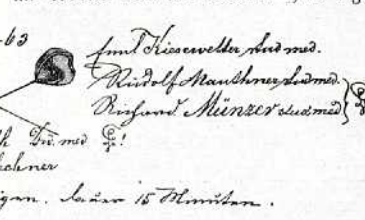 -63
Emil Kiesewetter stud med.
Rudolf Mauthner stud med.
Richard Münzer stud. med
Dr. med !
igen. Dauer 15 Minuten.